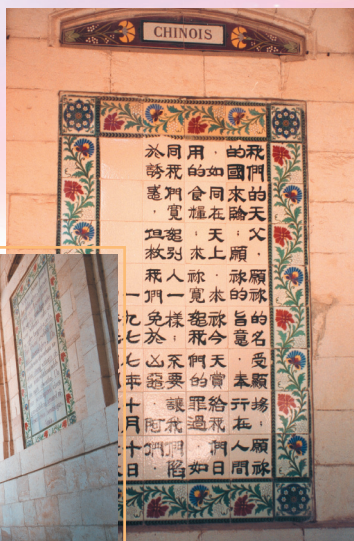 CHINOIS
我們的天父,願祢的名受顯揚;願祢
的國來臨;願祢的旨意,奉行在人間
,如同在天上。求祢今天賞給我們日
用的食糧;求祢寬恕我們的罪過,如
同我們寬恕別人一樣;不要讓我們陷
於誘惑,但救我們免於凶惡。阿們。
一九七七年十月十日